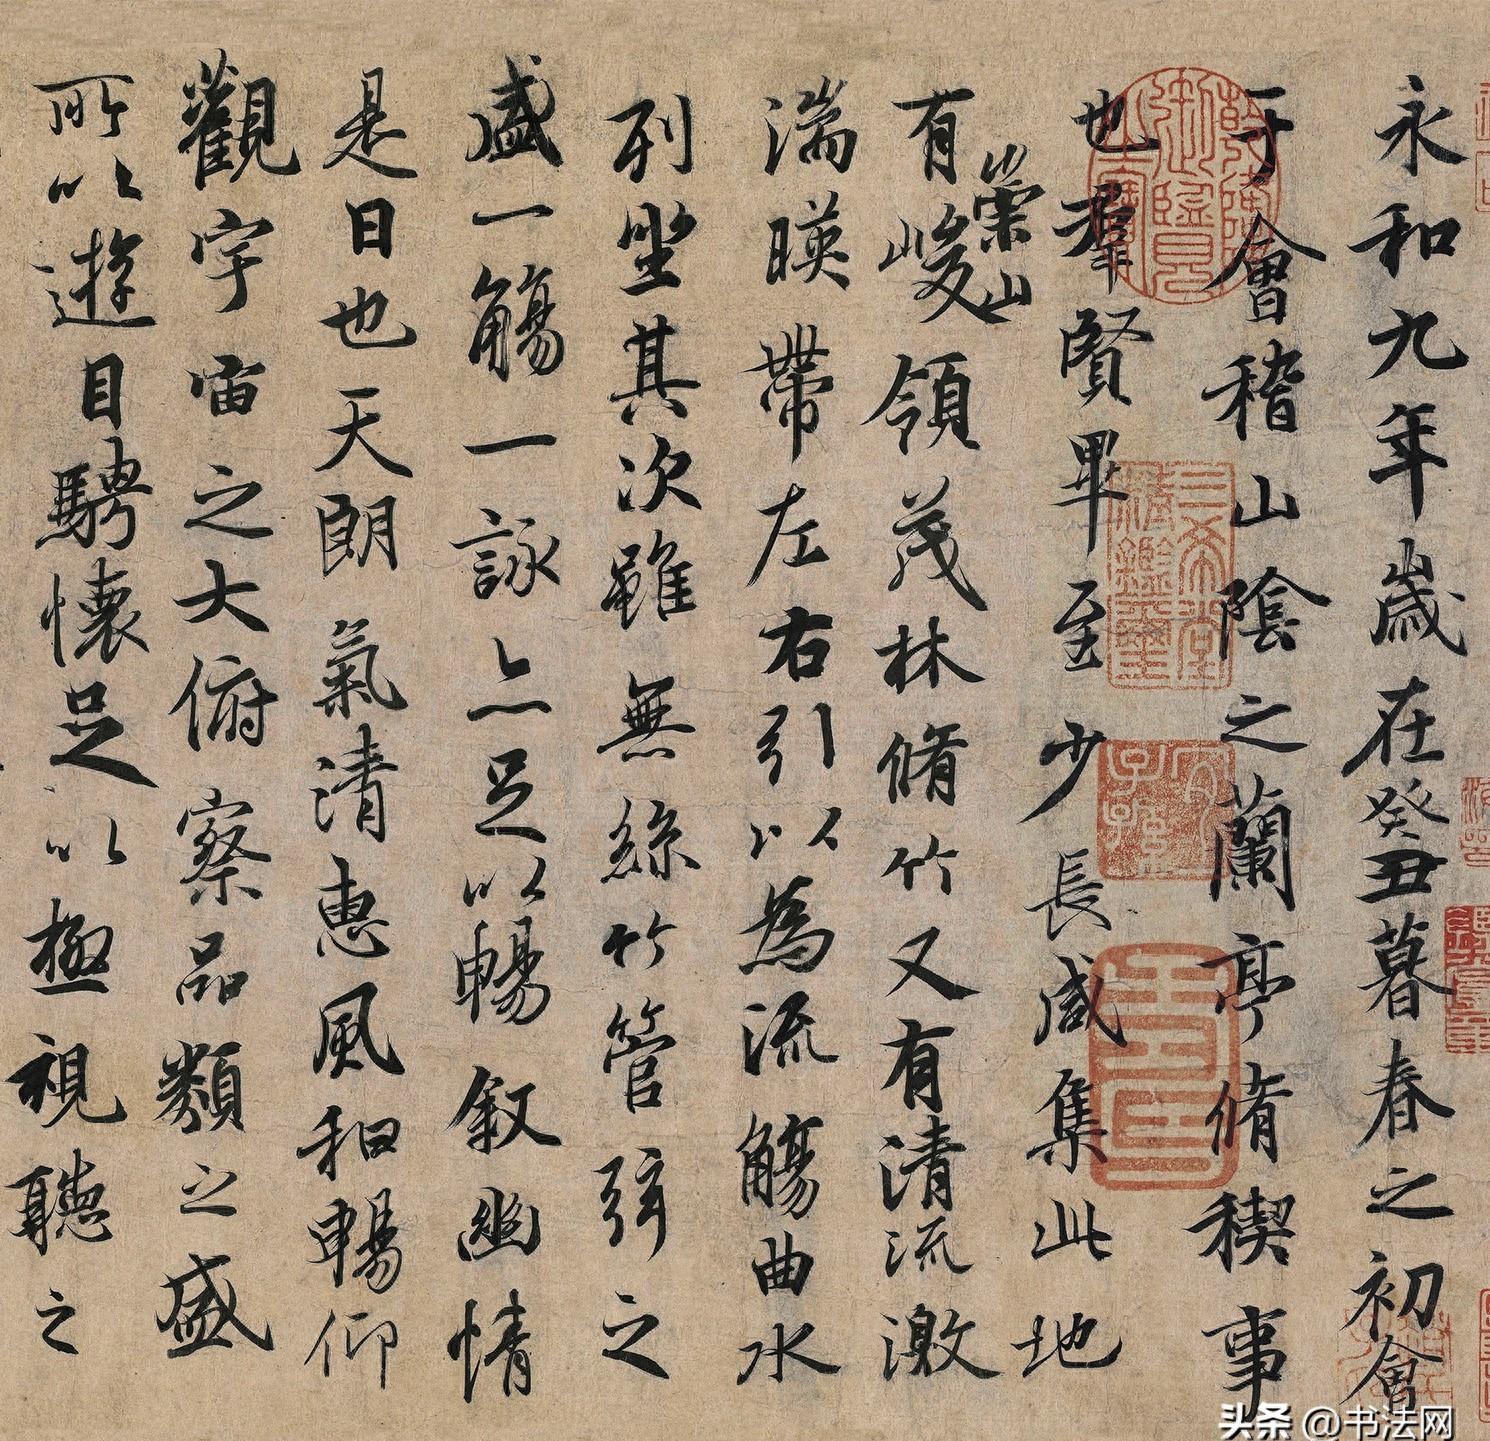 永和九年歲在癸丑暮春之初會
于會稽山陰之蘭亭脩稧事
也羣賢畢至少長咸集此地
有崇山峻領茂林脩竹又有清流激
湍暎帶左右引以為流觴曲水
列坐其次雖無絲竹管弦之
盛一觴一詠亦足以暢敘幽情
是日也天朗氣清惠風和暢仰
觀宇宙之大俯察品類之盛
所以遊目騁懷足以極視聽之
三希堂精鑑璽
宜子孫
头条 @书法网